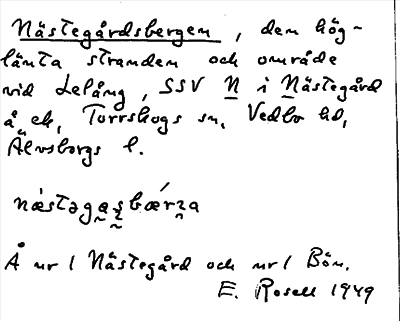 Nästegårdsbergen, den hög-
länta stranden och område
vid Lelång, SSV N i Nästegård
å ek, Torrskogs sn, Vedbo hd,
Älvsborgs l.
nǽstəga̰s̰bærṉa
Å nr 1 Nästegård och nr 1 Bön.
E. Rosell 1949